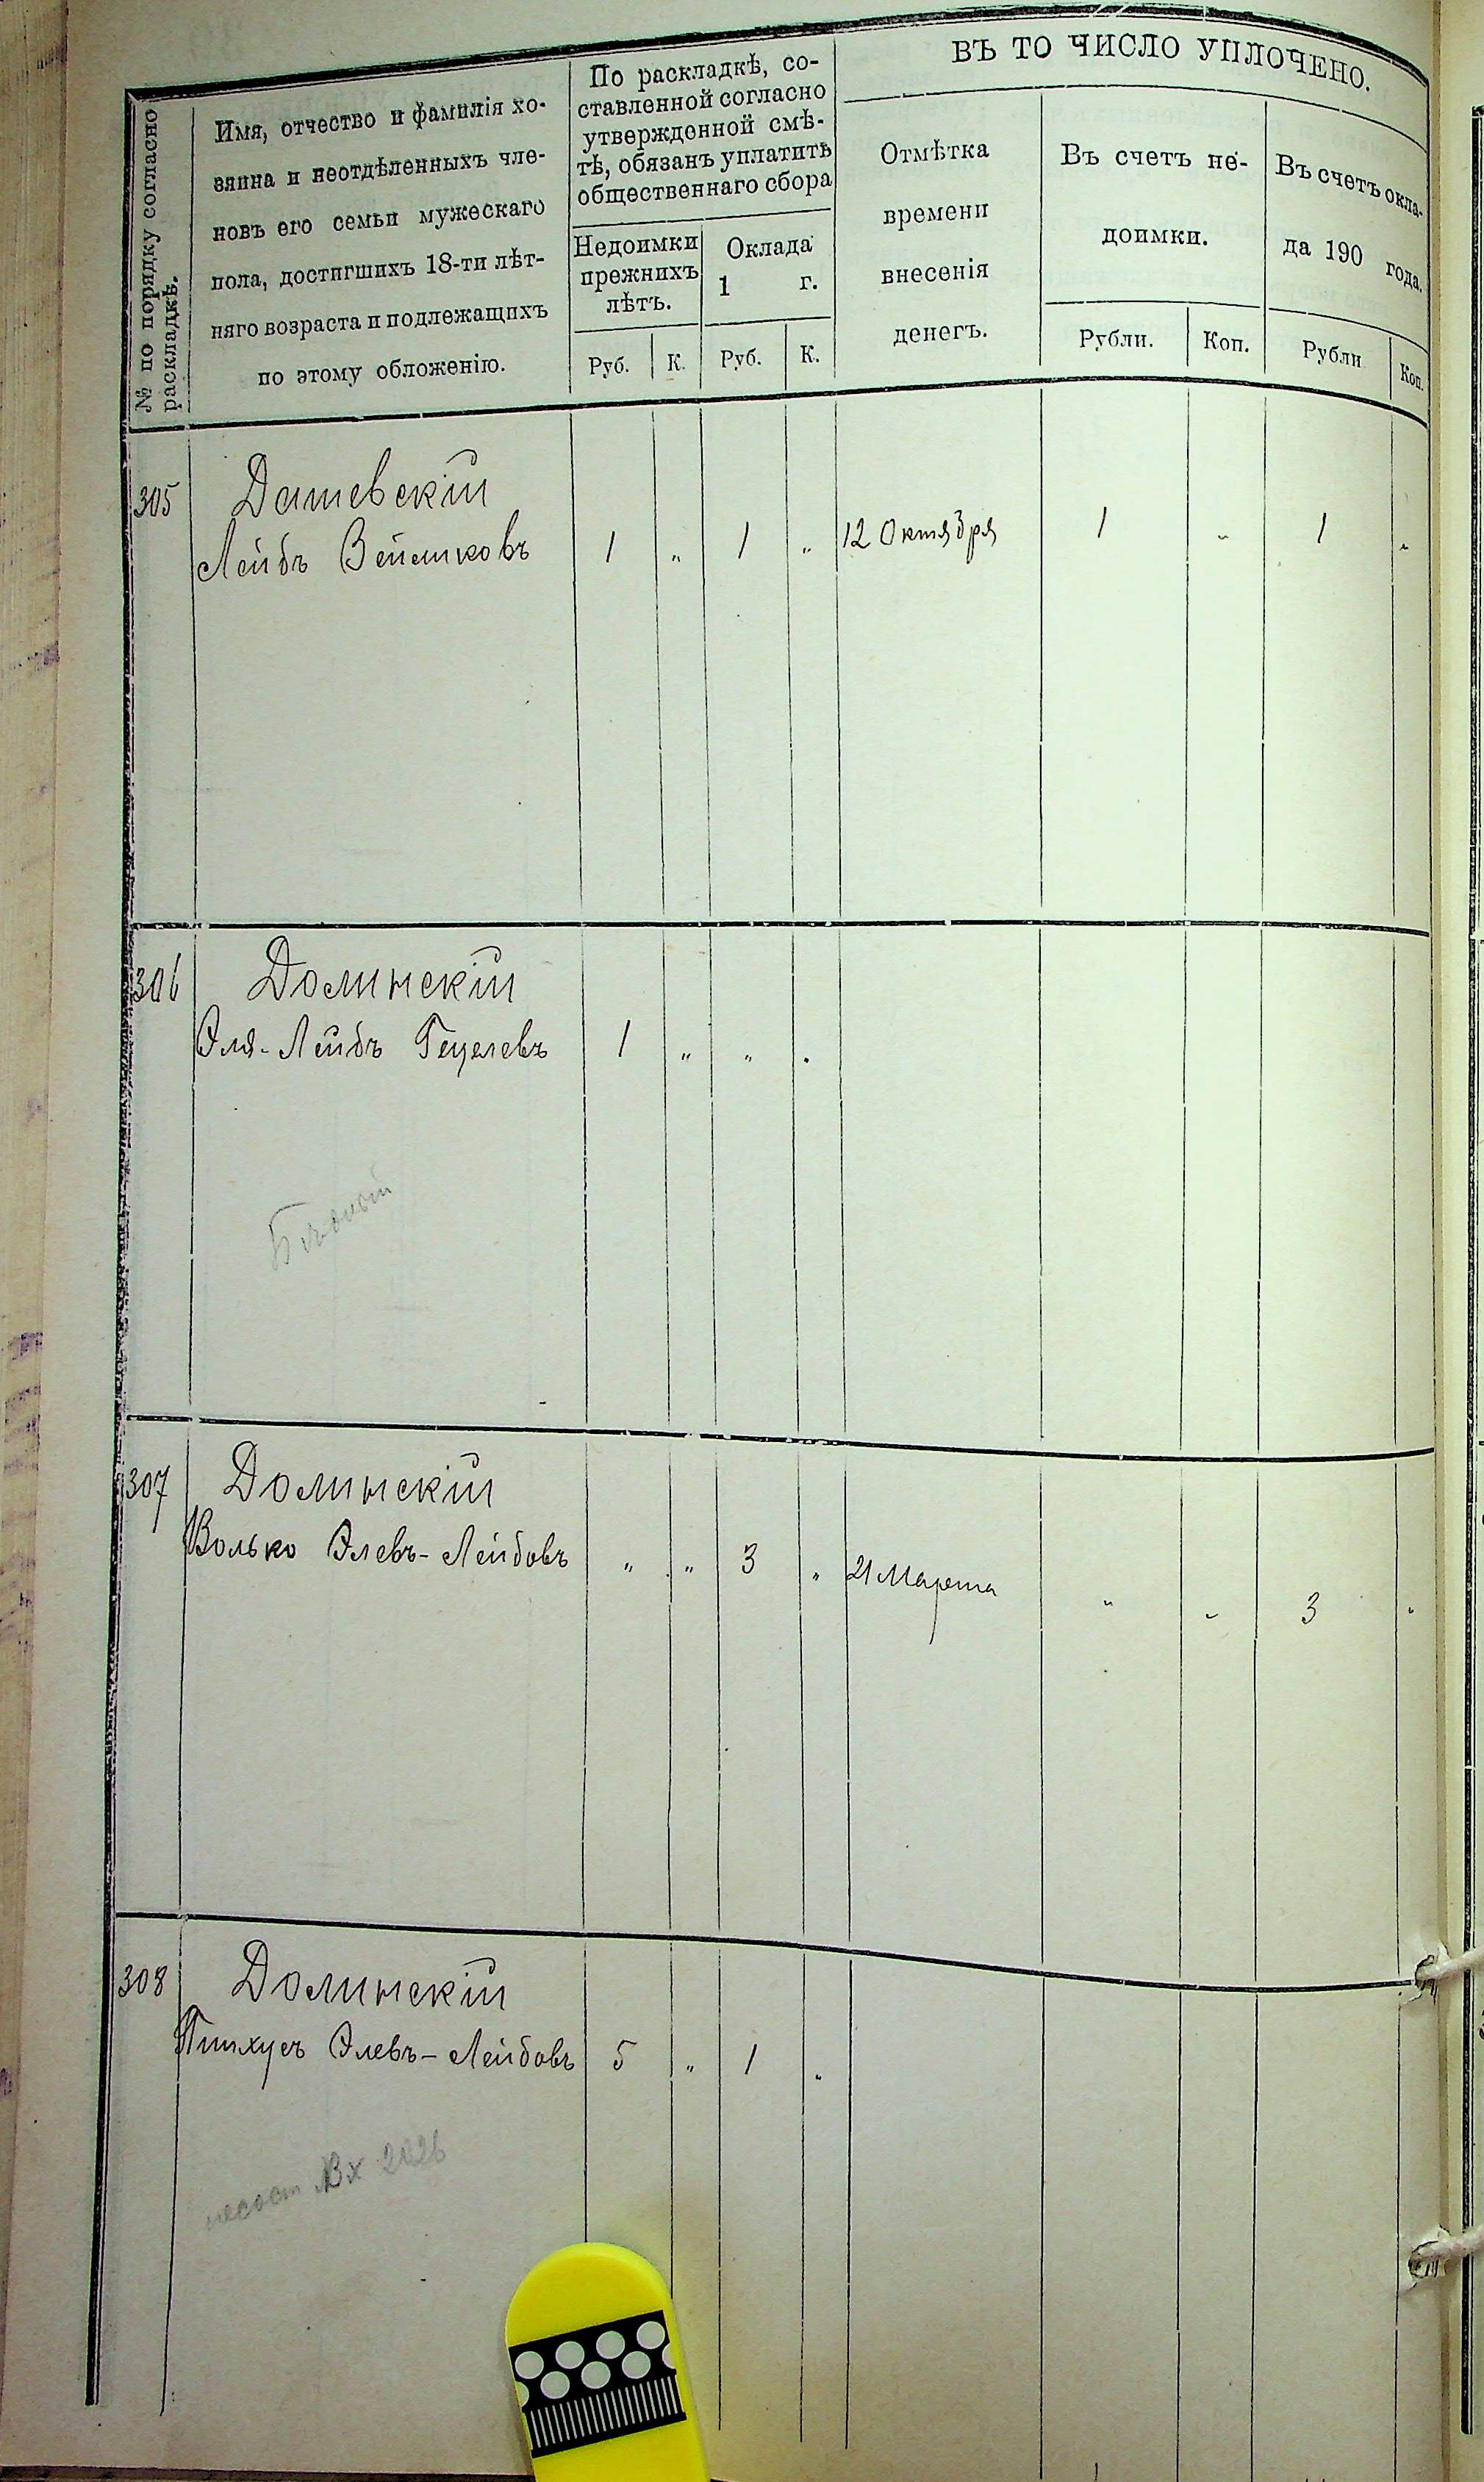 № по порядку согласно
раскладкѣ.
Имя, отчество и фамилія хо-
зяина и неотдѣленныхъ чле-
новъ его семьи мужескаго
пола, достигшихъ 18-ти лѣт-
няго возраста и подлежащихъ
по этому обложенію.
По раскладкѣ, со-
ставленной согласно
утвержденной смѣ-
тѣ, обязанъ уплатить
общественнаго сбора
Недоимки
прежнихъ
лѣтъ.
Оклада
1 г.
Руб. К. Руб. К.
ВЪ ТО ЧИСЛО УПЛОЧЕНО.
Отмѣтка
времени
внесенія
денегъ.
Въ счетъ не-
доимки.
Рубли. Коп.
Въ счетъ окла-
да 190 года.
Рубли Коп.
305 Дашевскій
Лейбъ Вельковъ 1 „ 1 „ 12 Октября 1 „ 1 „
306 Долинскій
Эля-Лейбъ Гецелевъ 1 „ „ „
Бѣдный
307 Долинскій
Волько Элевъ-Лейбовъ „ „ 3 „ 21 Марта „ „ 3 „
308 Долинскій
Пинхусъ Элевъ-Лейбовъ 5 „ 1 „
Вх 2026